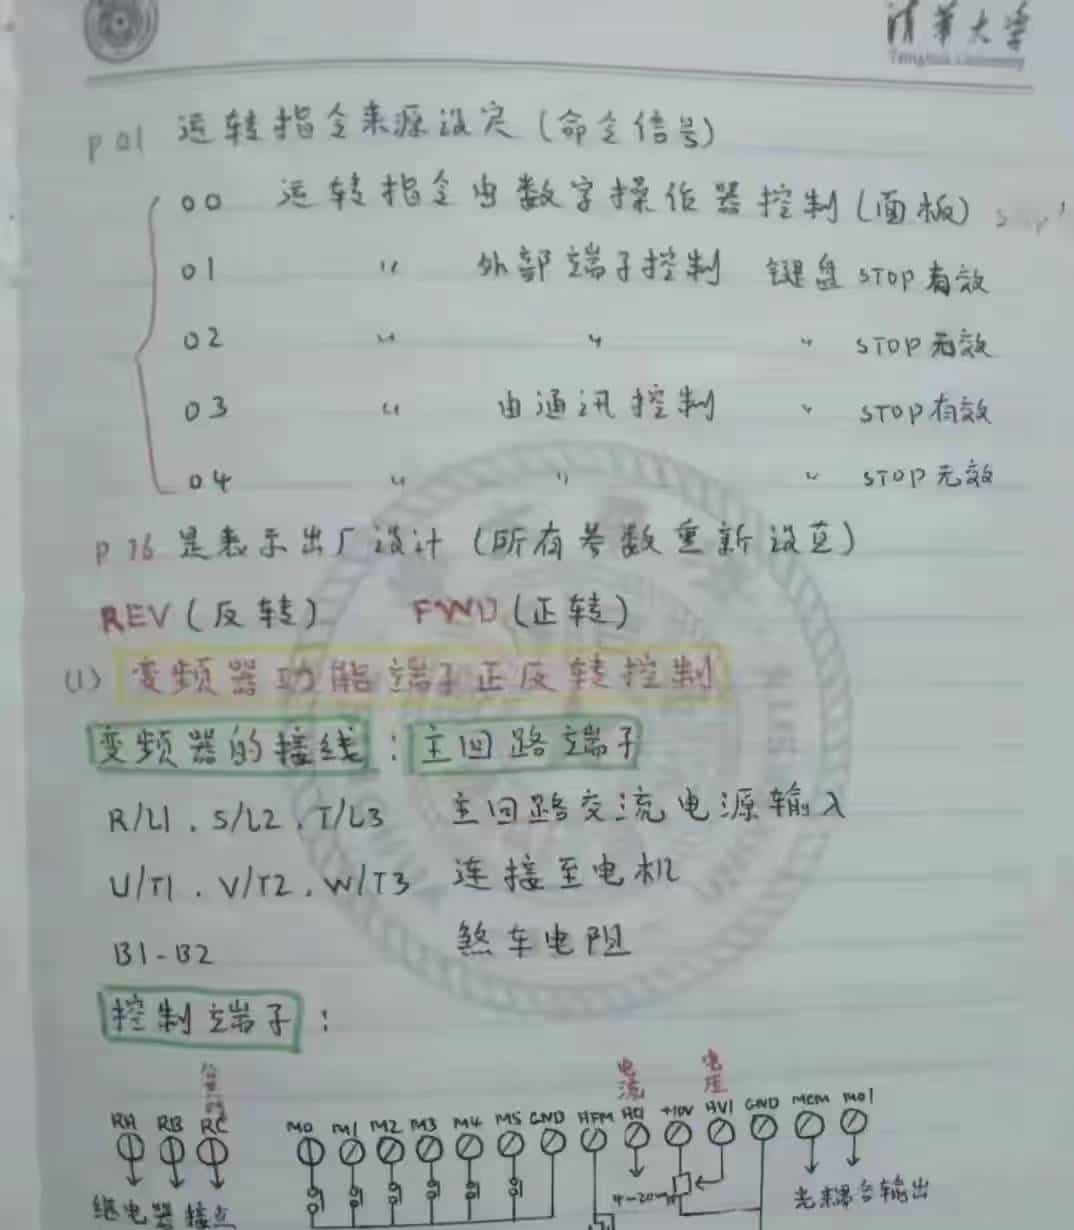 清华大学
Tsinghua University
p 01 运转指令来源设定(命令信号)
00 运转指令由数字操作器控制(面板)
01 〃 外部端子控制 键盘 STOP有效
02 〃 〃 〃 STOP无效
03 〃 由通讯控制 〃 STOP有效
04 〃 〃 〃 STOP无效
p 76 是表示出厂设计(所有参数重新设置)
REV(反转) FWD(正转)
(1) 变频器功能端子正反转控制
变频器的接线:主回路端子
R/L1.S/L2.T/L3 主回路交流电源输入
U/T1.V/T2.W/T3 连接至电机
B1-B2 煞车电阻
控制端子:
电流 电压
RA RB RC M0 M1 M2 M3 M4 M5 GND AFM ACI +10V AVI GND MCM MO1
4-20mA
继电器接点 光耦合输出